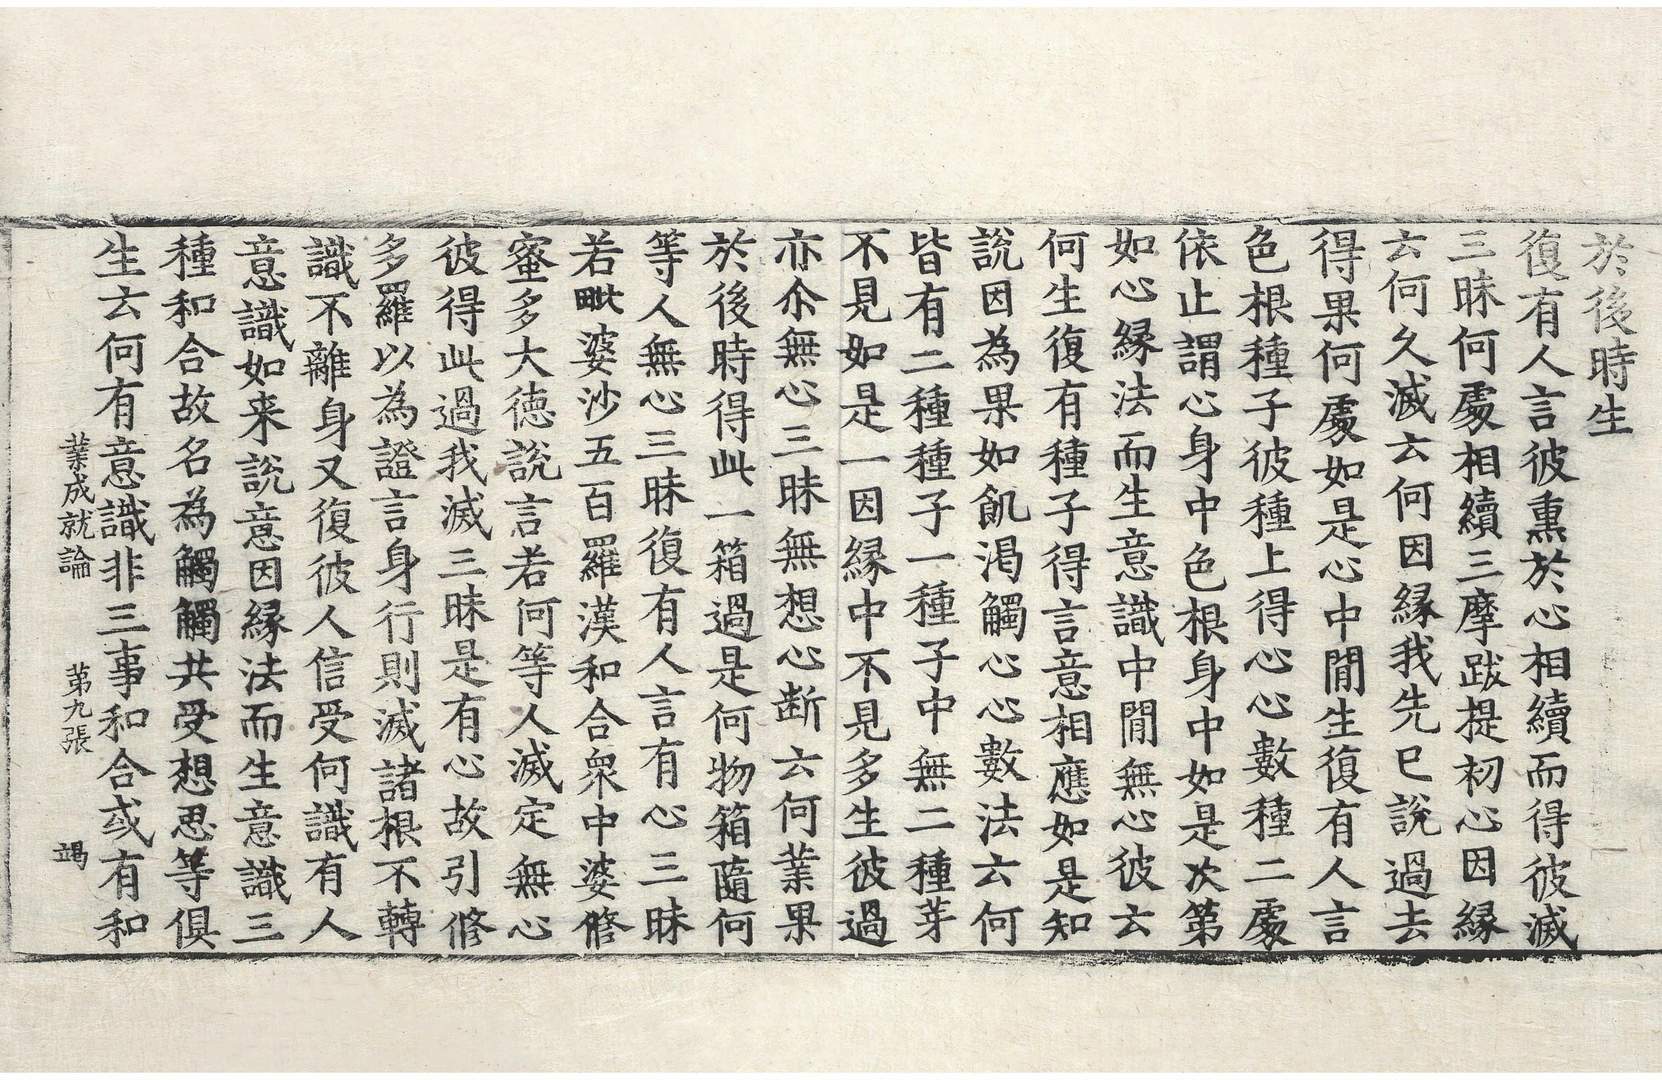 於後時生
復有人言彼熏於心相續而得彼滅
三昧何處相續三摩跋提初心因緣
云何久滅云何因緣我先已說過去
得果何處如是心中間生復有人言
色根種子彼種上得心心數種二處
依止謂心身中色根身中如是次第
如心緣法而生意識中間無心彼云
何生復有種子得言意相應如是知
說因為果如飢渴觸心心數法云何
皆有二種種子一種子中無二種芽
不見如是一因緣中不見多生彼過
亦尒無心三昧無想心断云何業果
於後時得此一箱過是何物箱隨何
等人無心三昧復有人言有心三昧
若毗婆沙五百羅漢和合衆中婆修
蜜多大德說言若何等人滅定無心
彼得此過我滅三昧是有心故引修
多羅以為證言身行則滅諸根不轉
識不離身又復彼人信受何識有人
意識如来說意因緣法而生意識三
種和合故名為觸觸共受想思等俱
生云何有意識非三事和合或有和
業成就論 苐九張 竭